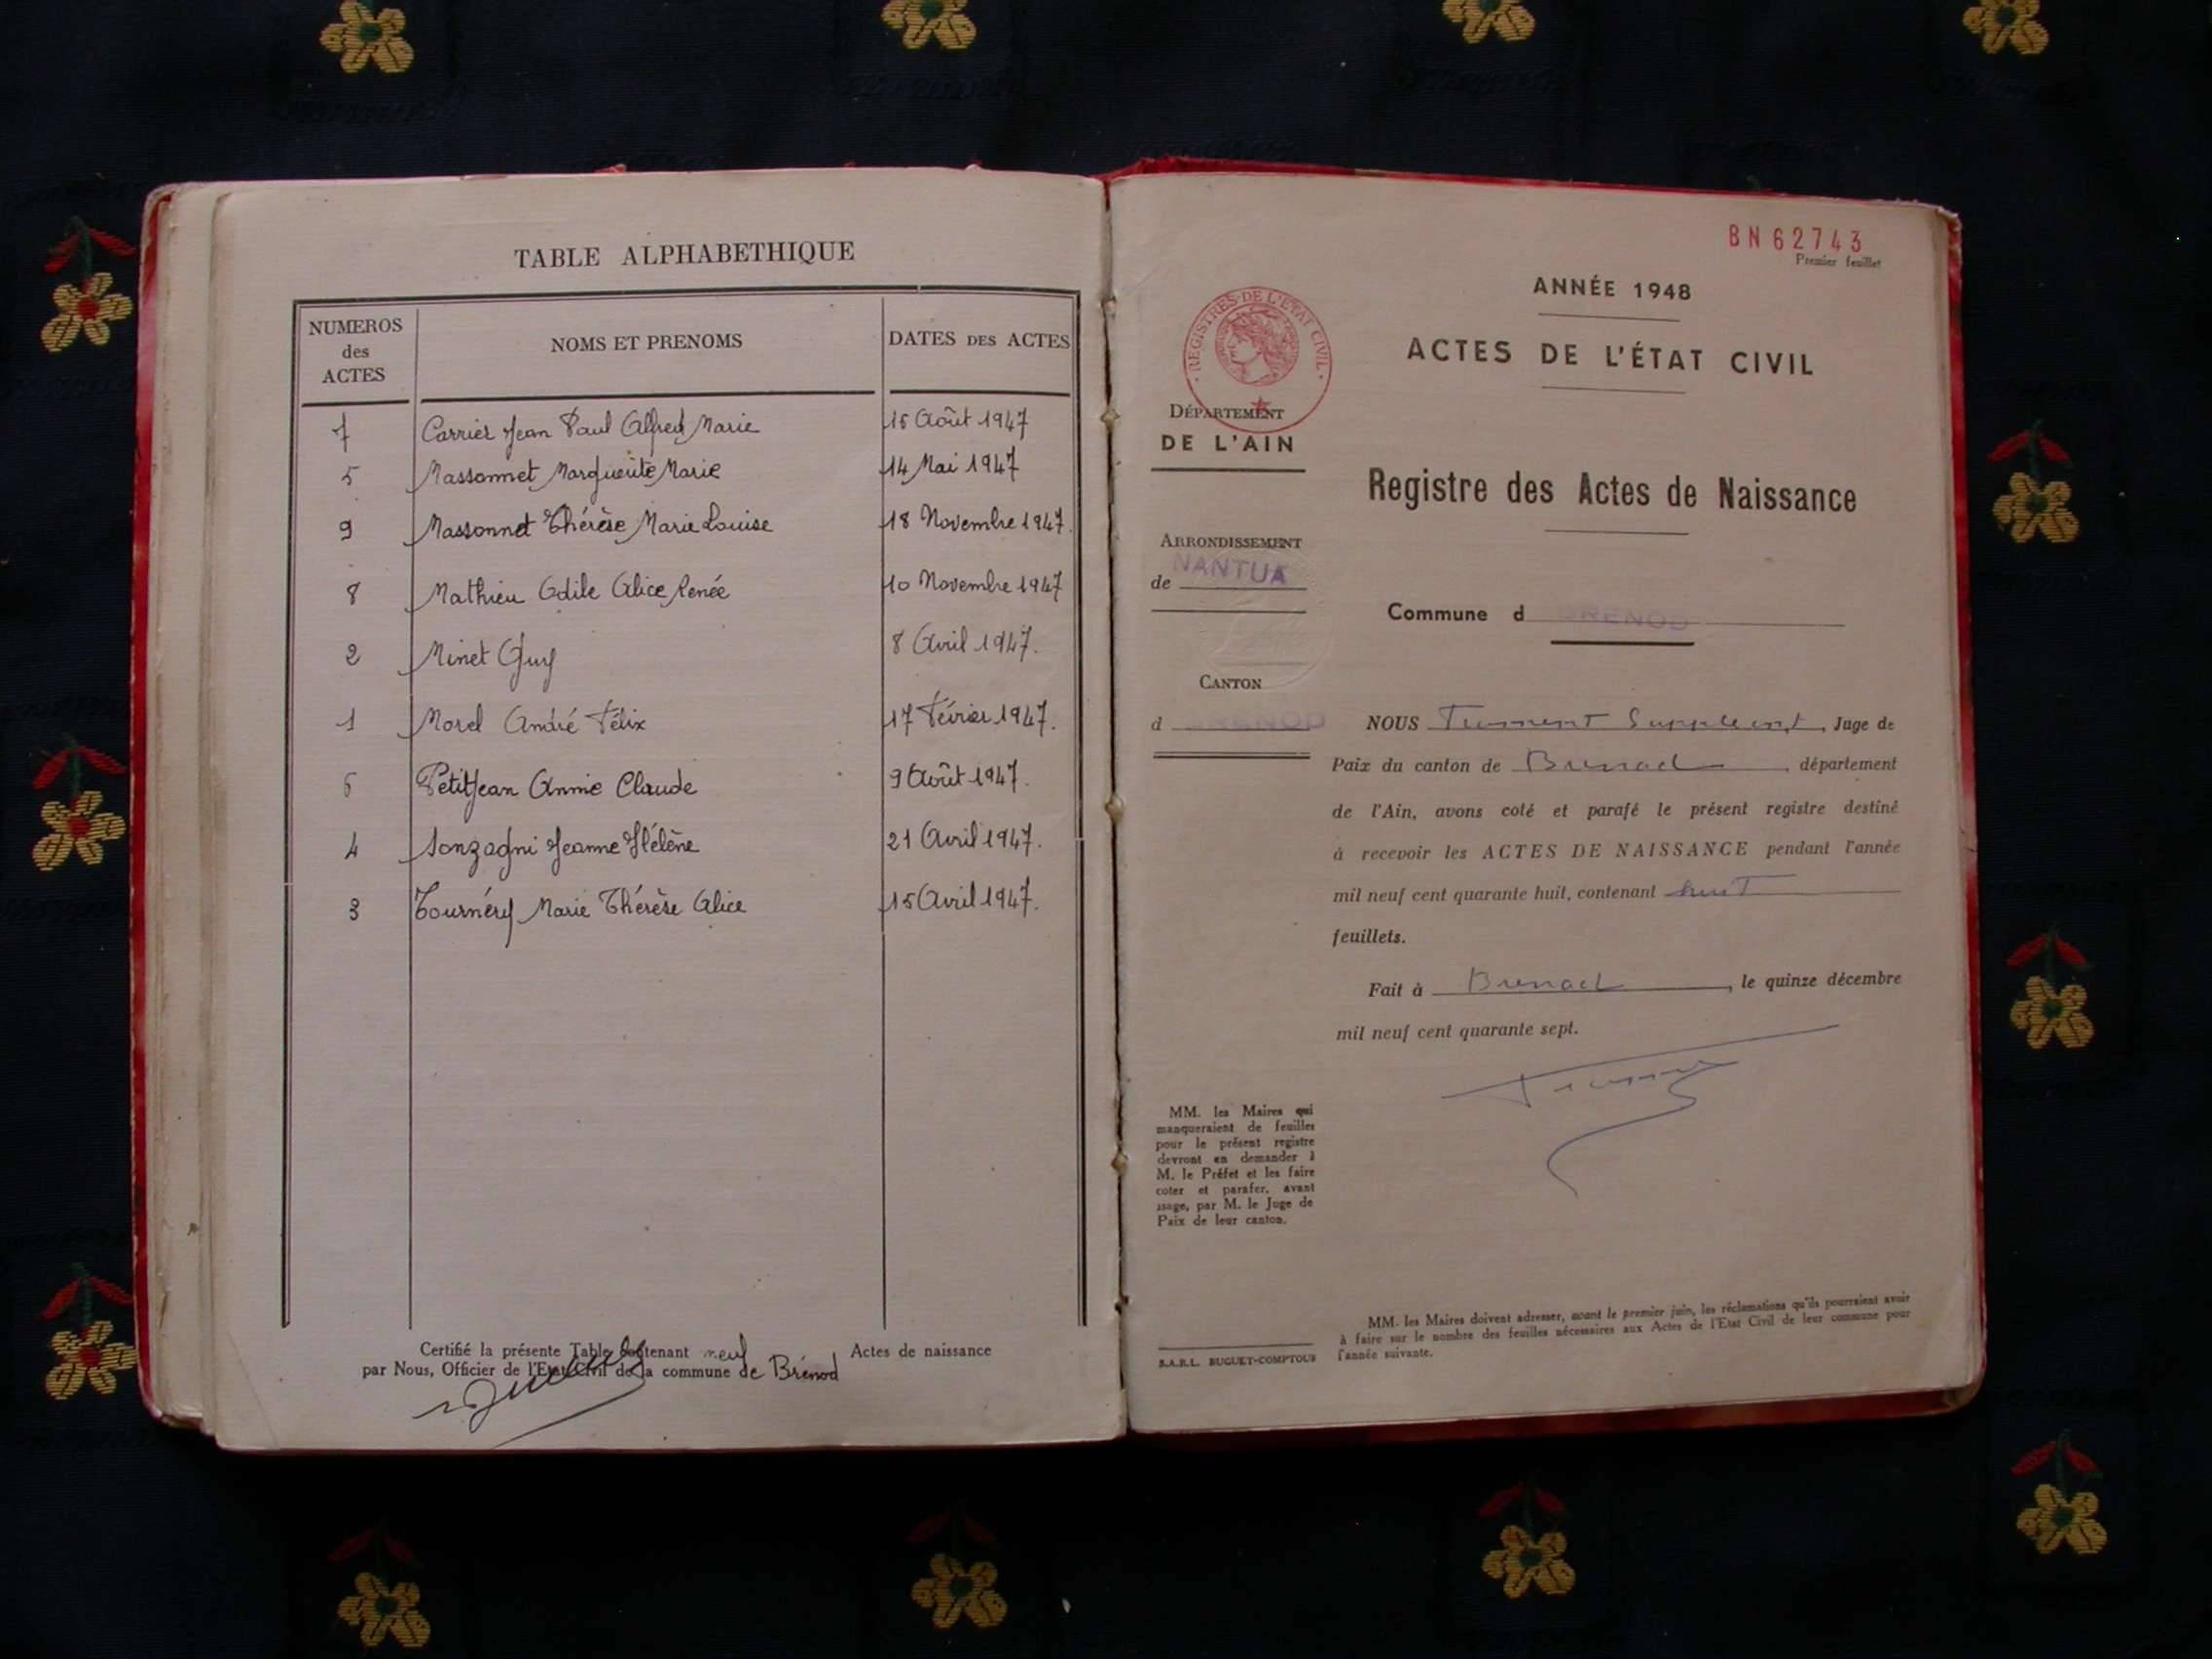 TABLE ALPHABETHIQUE
NUMEROS des ACTES NOMS ET PRENOMS DATES DES ACTES
7 Carrier Jean Paul Alfred Marie 15 Août 1947
5 Massonnet Marguerite Marie 14 Mai 1947
9 Massonnet Thérèse Marie Louise 18 Novembre 1947.
8 Mathieu Odile Alice Renée 10 Novembre 1947
2 Minet Guy 8 Avril 1947.
1 Morel André Félix 17 Février 1947.
6 Petitjean Annie Claude 9 Août 1947.
4 Sonzogni Jeanne Hélène 21 Avril 1947.
3 Tournéry Marie Thérèse Alice 15 Avril 1947.
Certifié la présente Table contenant neuf Actes de naissance
par Nous, Officier de l'Etat Civil de la commune de Brénod
BN 62743
Premier feuillet
ANNÉE 1948
ACTES DE L'ÉTAT CIVIL
· REGISTRES DE L'ÉTAT CIVIL ·
DÉPARTEMENT
DE L'AIN
Registre des Actes de Naissance
ARRONDISSEMENT
de NANTUA
Commune d BRENOD
CANTON
d BRENOD
NOUS Suppléant, Juge de
Paix du canton de Brenod, département
de l'Ain, avons coté et parafé le présent registre destiné
à recevoir les ACTES DE NAISSANCE pendant l'année
mil neuf cent quarante huit, contenant huit
feuillets.
Fait à Brenod, le quinze décembre
mil neuf cent quarante sept.
MM. les Maires qui
manqueraient de feuilles
pour le présent registre
devront en demander à
M. le Préfet et les faire
coter et parafer, avant
usage, par M. le Juge de
Paix de leur canton.
S.A.R.L. BUGUET-COMPTOUR
MM. les Maires doivent adresser, avant le premier juin, les réclamations qu'ils pourraient avoir
à faire sur le nombre des feuilles nécessaires aux Actes de l'Etat Civil de leur commune pour
l'année suivante.